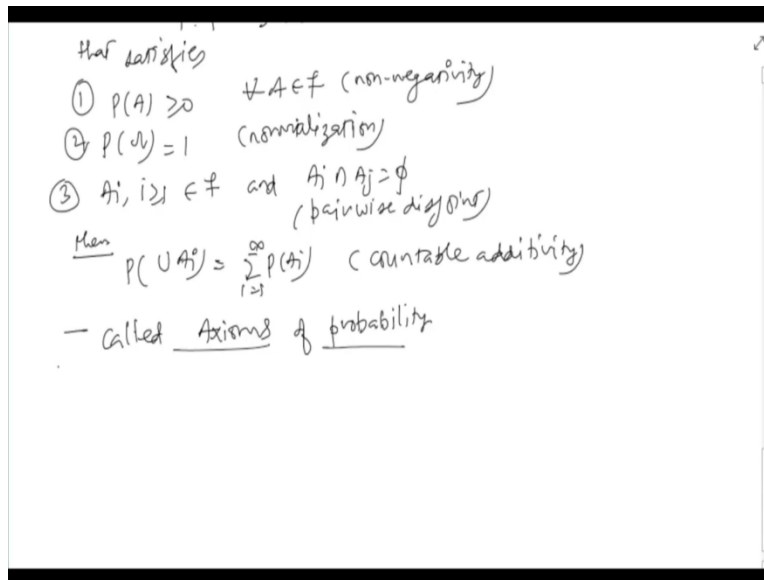 that satisfies
① P(A) ≥ 0 ∀ A ∈ F (non-negativity)
② P(Ω) = 1 (normalization)
③ Ai, i≥1 ∈ F and Ai ∩ Aj = ϕ
(pairwise disjoint)
then
P(∪ Ai) = ∑_{i=1}^{∞} P(Ai) (countable additivity)
— called Axioms of probability